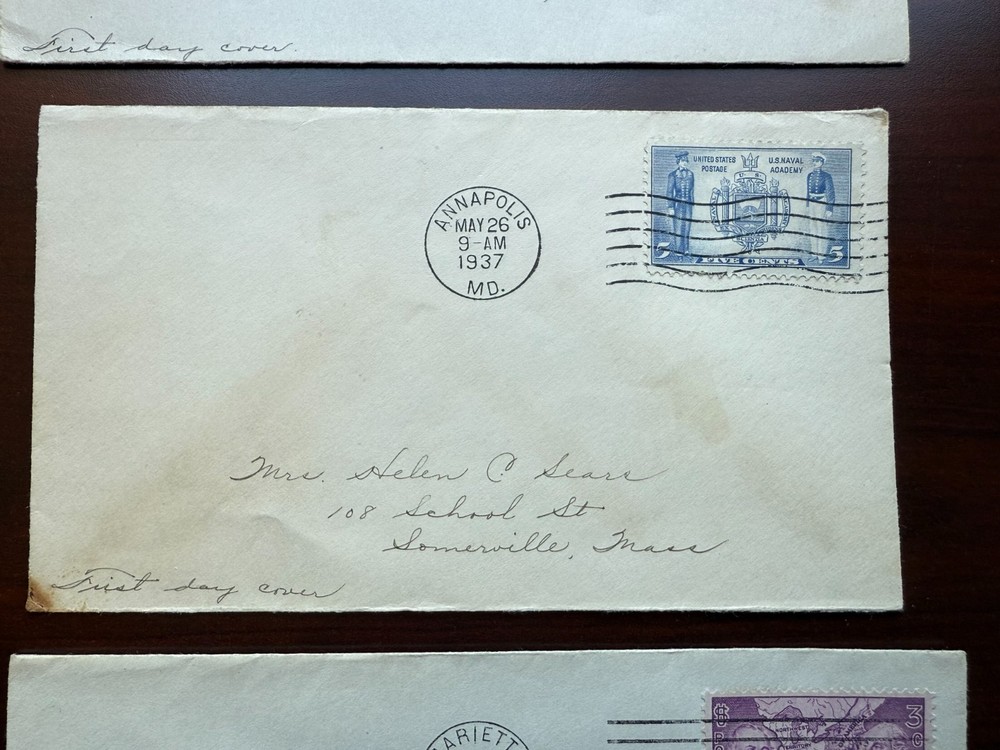 First day cover.
UNITED STATES POSTAGE
U.S. NAVAL ACADEMY
5 FIVE CENTS 5
ANNAPOLIS
MAY 26
9-AM
1937
MD.
Mrs. Helen C. Sears
108 School St
Somerville, Mass
First day cover
3